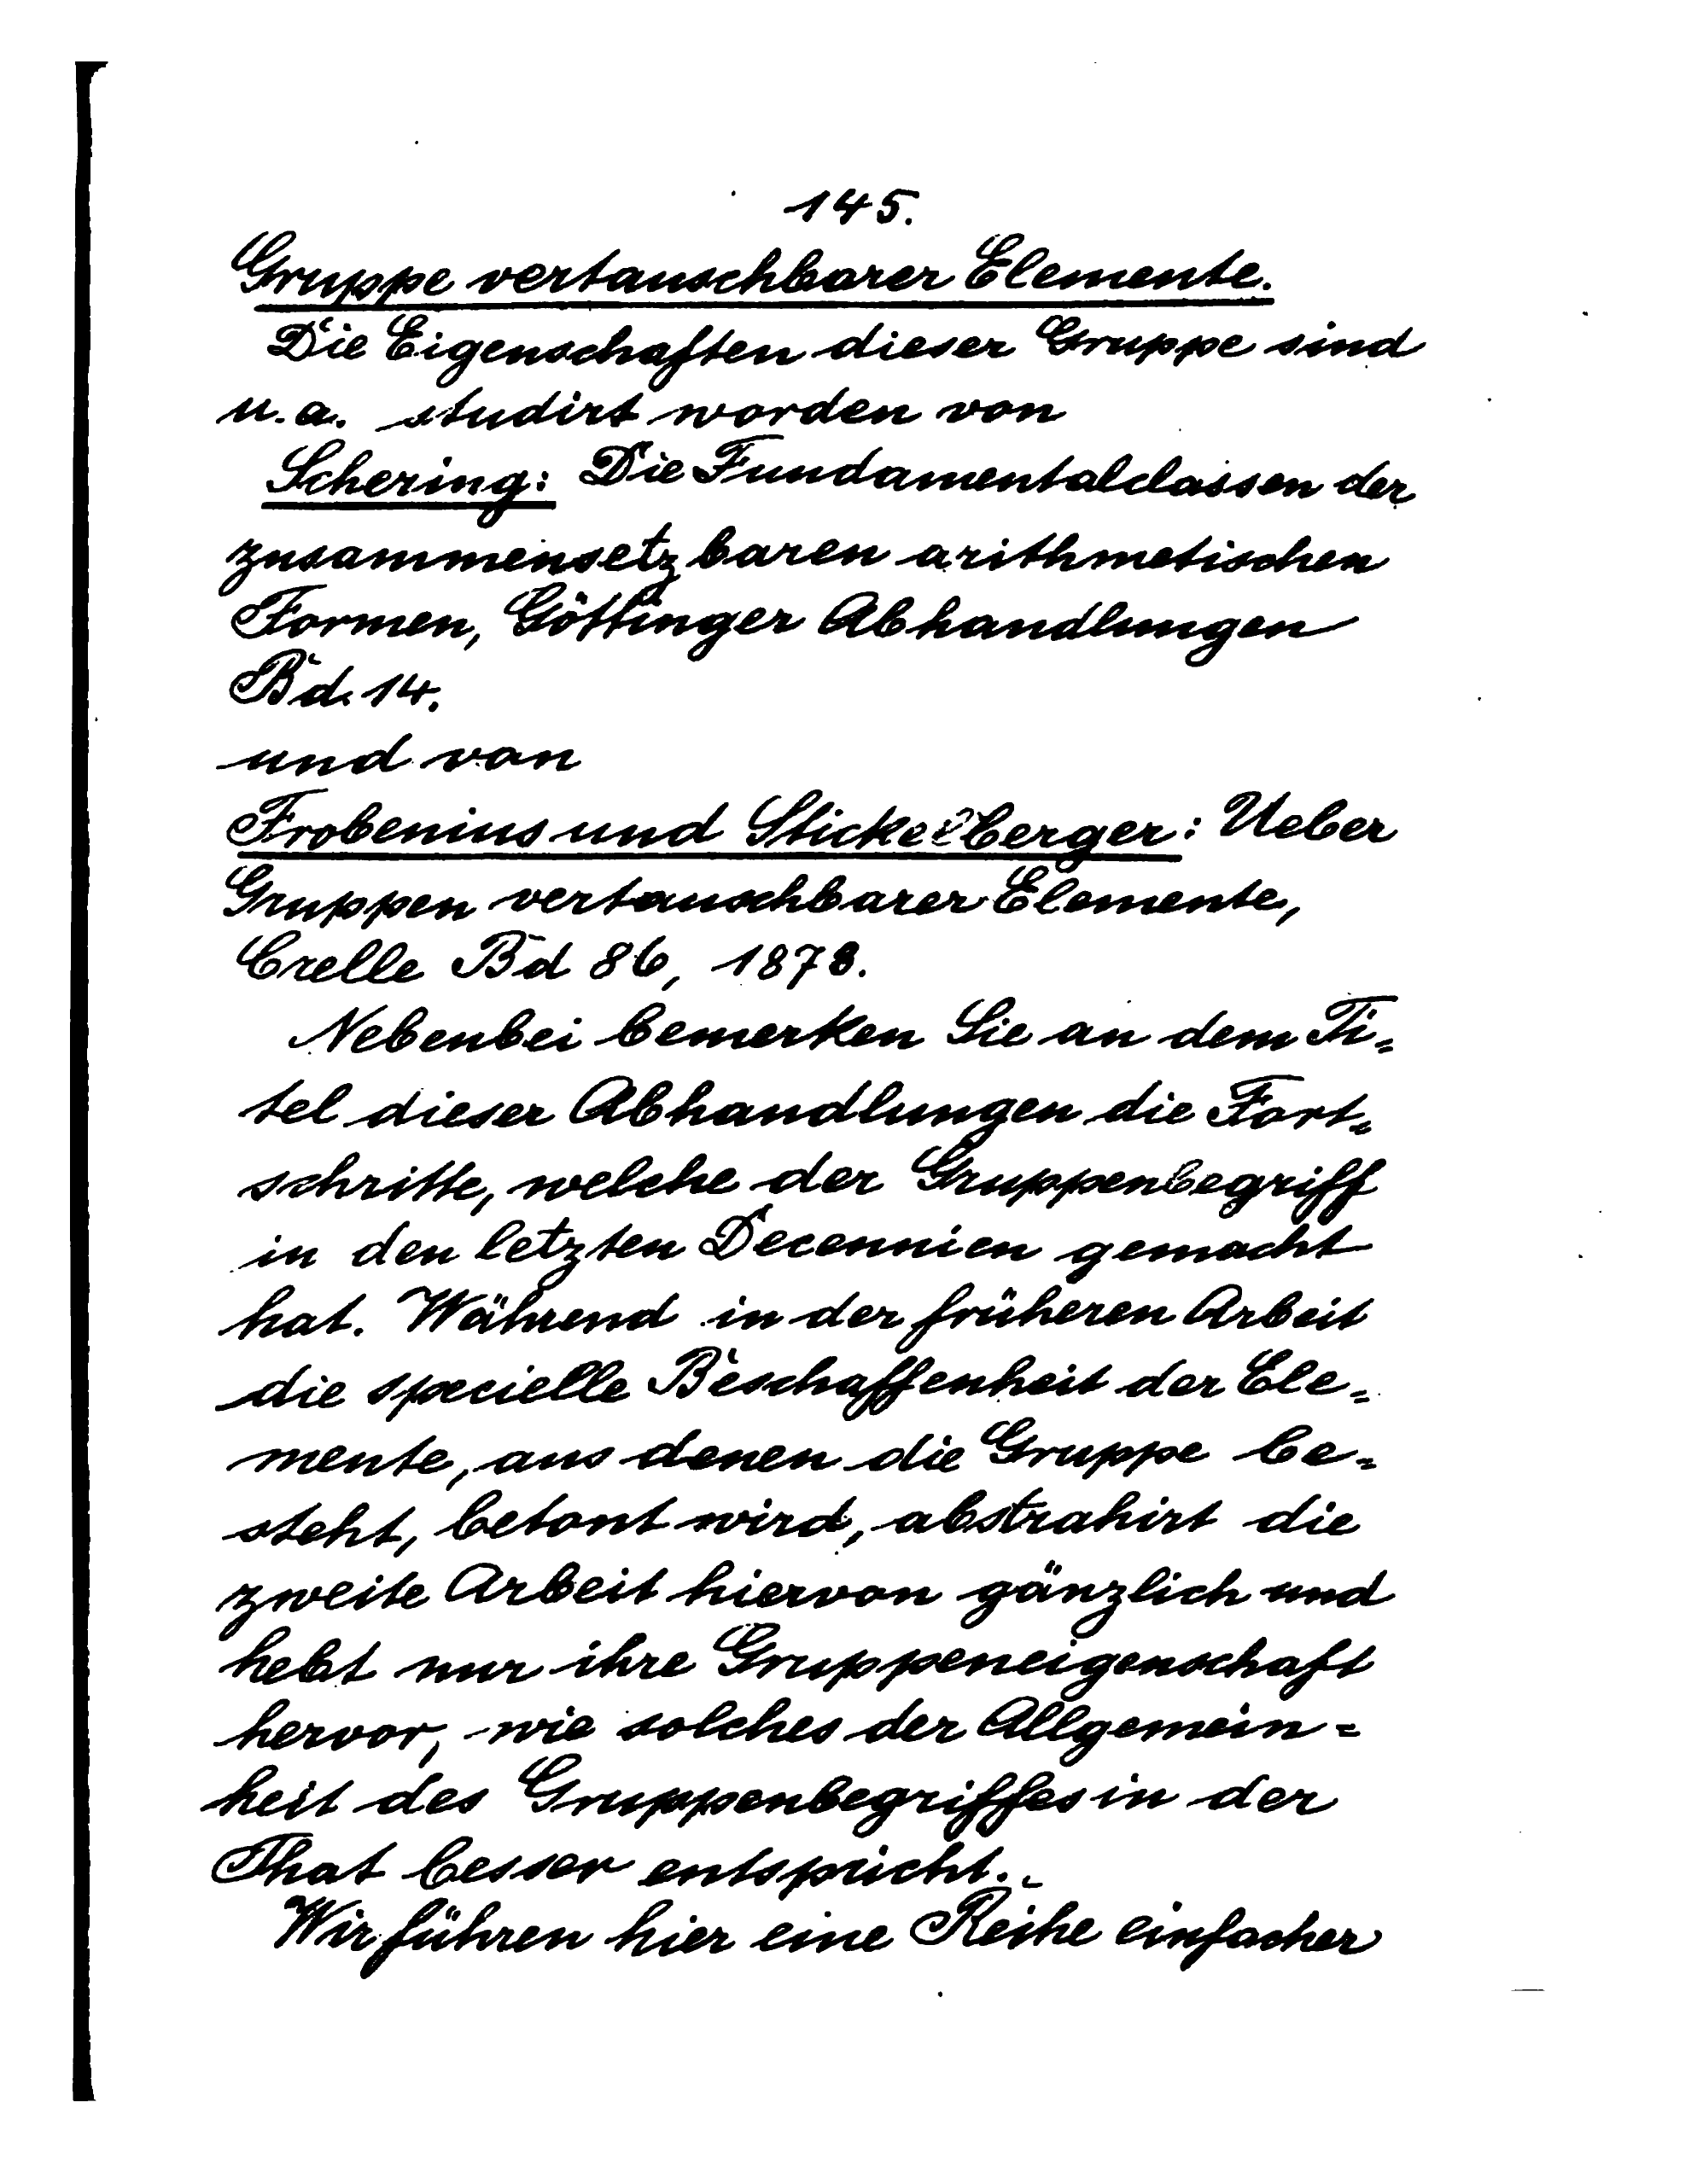 145.
Gruppe vertauschbarer Elemente.
Die Eigenschaften dieser Gruppe sind
u. a. studirt worden von
Schering: Die Fundamentalclassen der
zusammensetzbaren arithmetischen
Formen, Göttinger Abhandlungen
Bd. 14.
und von
Frobenius und Stickelberger: Ueber
Gruppen vertauschbarer Elemente,
Crelle Bd 86, 1878.
Nebenbei bemerken Sie an dem Ti=
tel dieser Abhandlungen die Fort=
schritte, welche der Gruppenbegriff
in den letzten Decennien gemacht
hat. Während in der früheren Arbeit
die specielle Beschaffenheit der Ele=
mente, aus denen die Gruppe be=
steht, betont wird, abstrahirt die
zweite Arbeit hiervon gänzlich und
hebt nur ihre Gruppeneigenschaft
hervor, wie solches der Allgemein=
heit des Gruppenbegriffes in der
That besser entspricht.
Wir führen hier eine Reihe einfacher